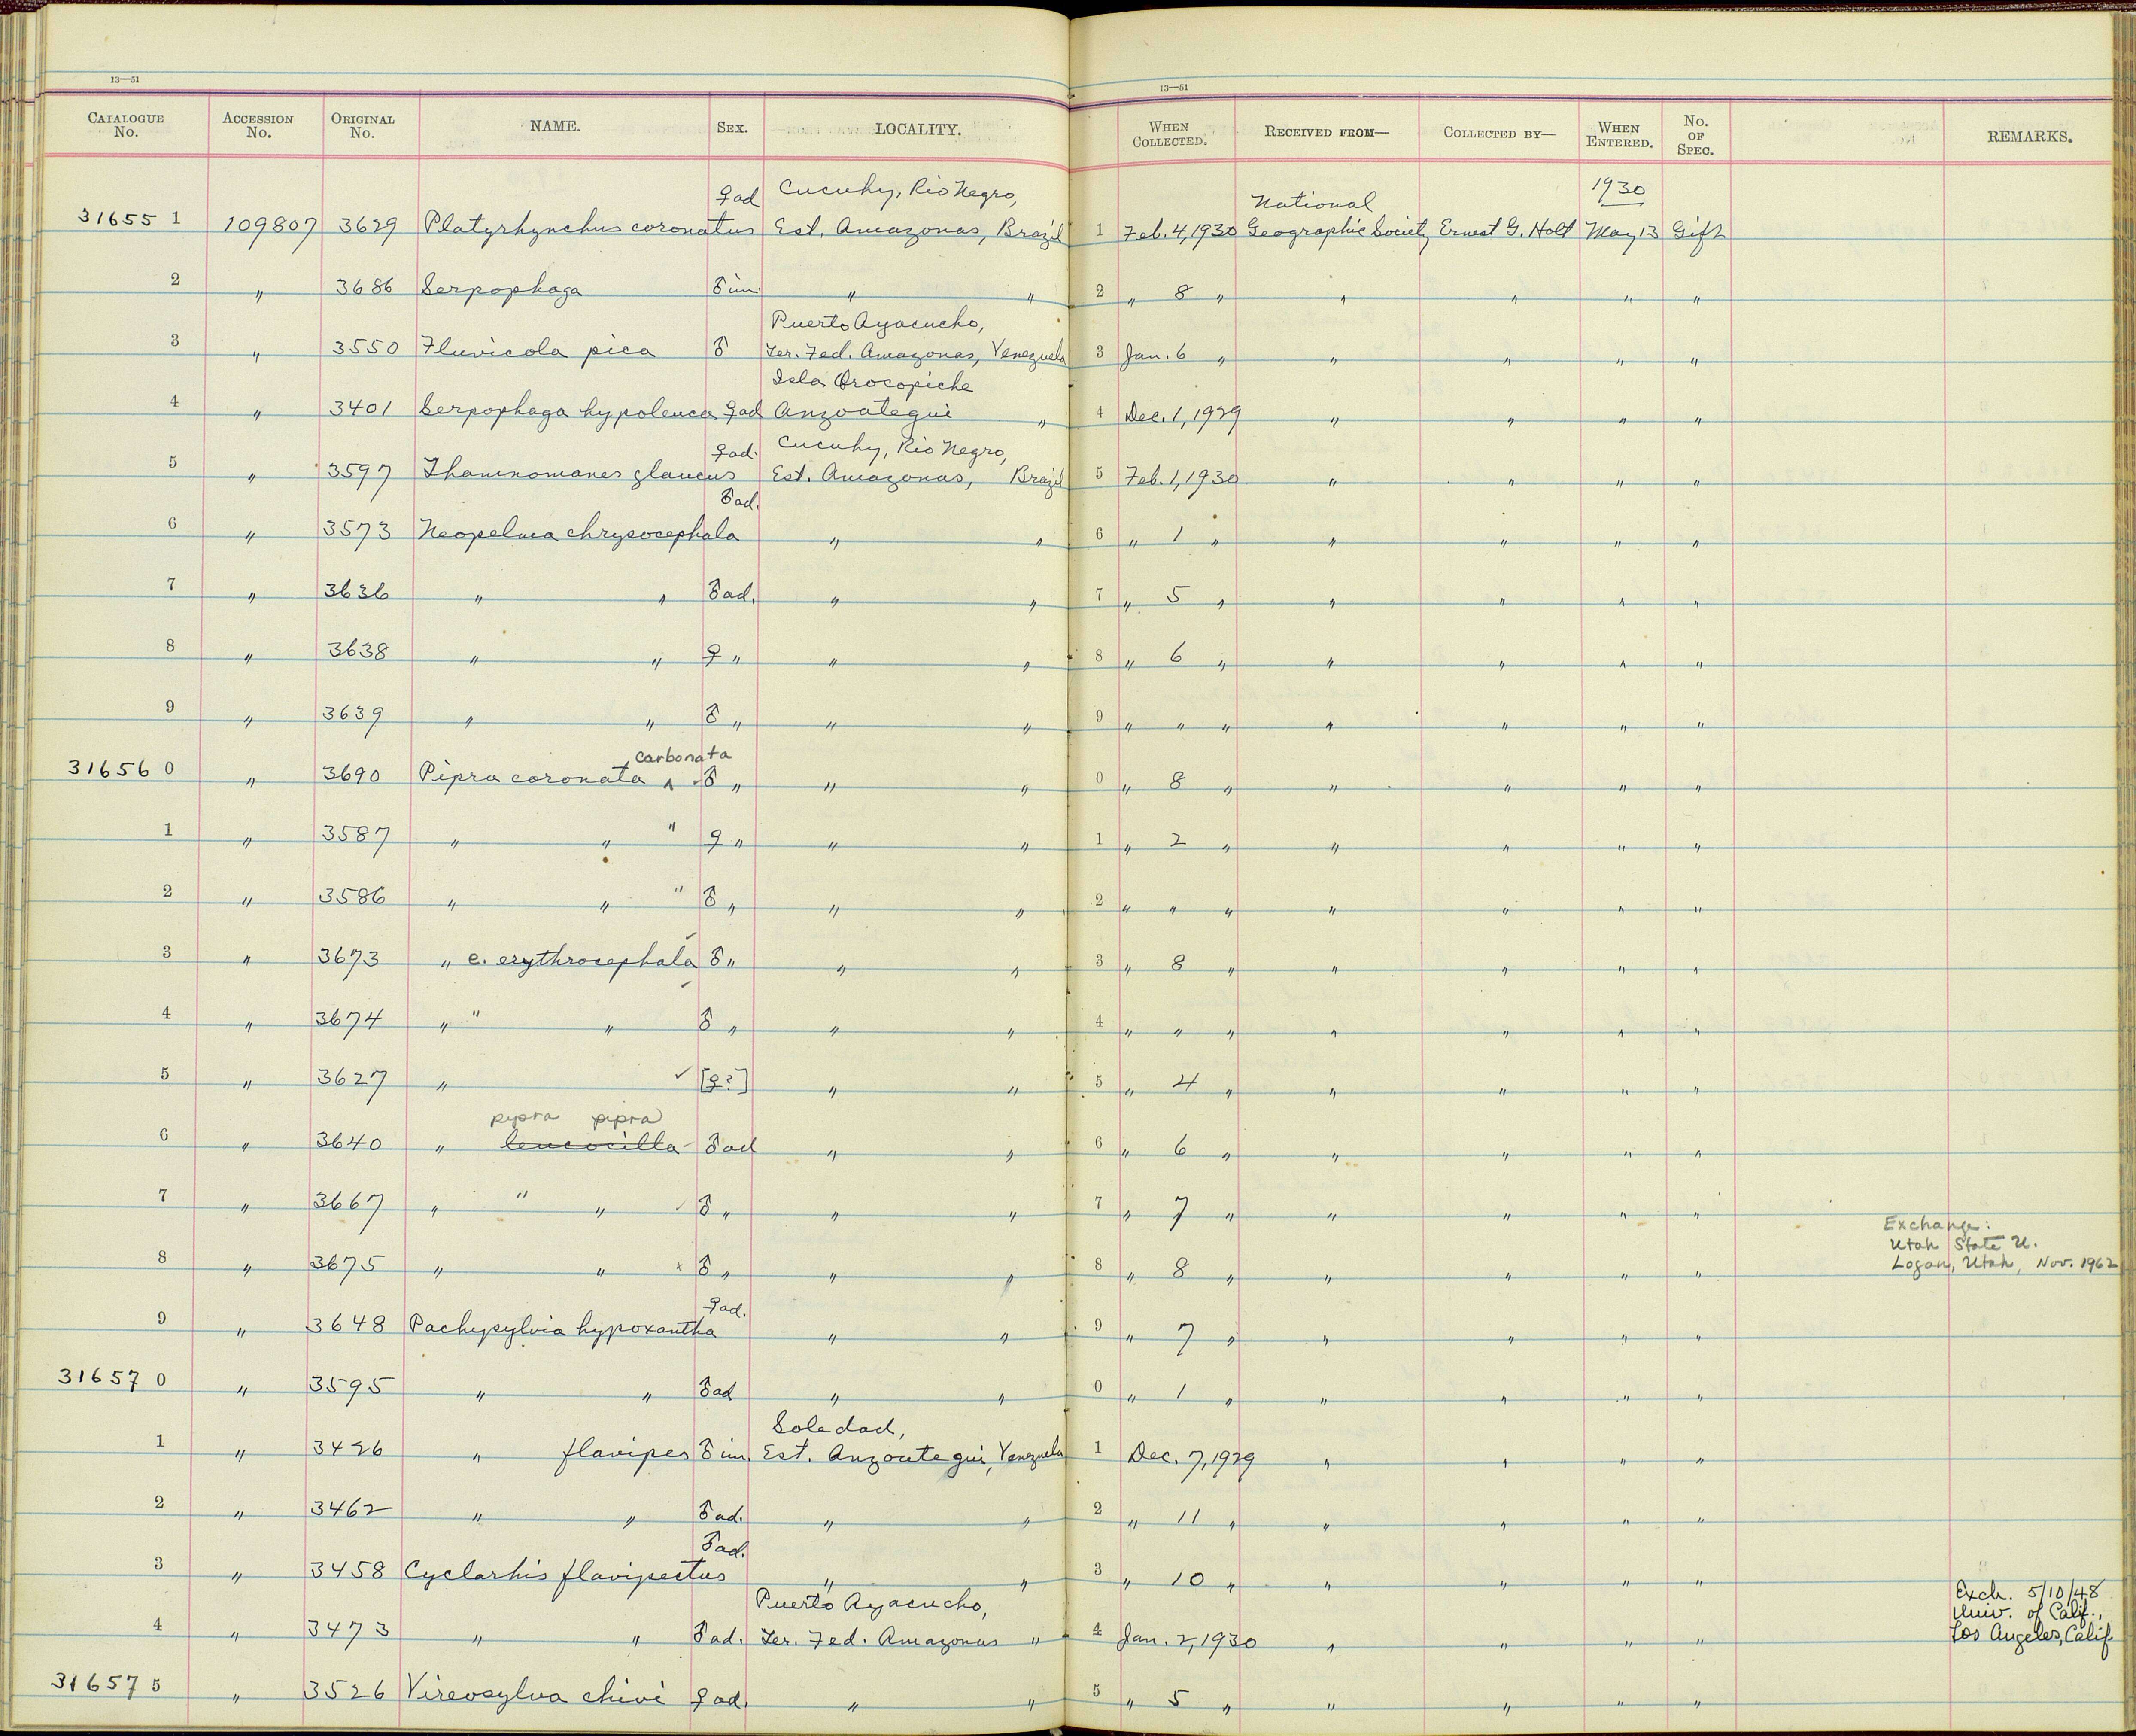 13—51
13—51
CATALOGUE No. ACCESSION No. ORIGINAL No. NAME. SEX. LOCALITY. WHEN COLLECTED. RECEIVED FROM— COLLECTED BY— WHEN ENTERED. No. OF SPEC. REMARKS.
♀ad Cucuhy, Rio Negro, National 1930
31655 1 109807 3629 Platyrhynchus coronatus Est. Amazonas, Brazil 1 Feb. 4, 1930 Geographic Society Ernest G. Holt May 13 Gift
2 " 3686 Serpophaga ♂ im. " " 2 " 8 " " " " "
Puerto Ayacucho,
3 " 3550 Fluvicola pica ♂ Ter. Fed. Amazonas, Venezuela 3 Jan. 6 " " " " "
Isla Orocopiche
4 " 3401 Serpophaga hypoleuca ♀ad Anzoategui " 4 Dec. 1, 1929 " " " "
♀ad. Cucuhy, Rio Negro,
5 " 3597 Thamnomanes glaucus Est. Amazonas, Brazil 5 Feb. 1, 1930 " " " "
♂ad.
6 " 3573 Neopelma chrysocephala " " 6 " 1 " " " " "
7 " 3636 " " ♂ad. " " 7 " 5 " " " " "
8 " 3638 " " ♀ " " " 8 " 6 " " " " "
9 " 3639 " " ♂ " " " 9 " " " " " " "
carbonata
31656 0 " 3690 Pipra coronata ^ ♂ " " " 0 " 8 " " " " "
1 " 3587 " " " ♀ " " " 1 " 2 " " " " "
2 " 3586 " " " ♂ " " " 2 " " " " " " "
3 " 3673 " e. erythrocephala ✓ ♂ " " " 3 " 8 " " " " "
4 " 3674 " " " ✓ ♂ " " " 4 " " " " " " "
5 " 3627 " ✓ [♀?] " " 5 " 4 " " " " "
pipra pipra
6 " 3640 " leucocilla ♂ad " " 6 " 6 " " " " "
7 " 3667 " " " ✓ ♂ " " " 7 " 7 " " " " "
Exchange:
Utah State U.
8 " 3675 " " x ♂ " " " 8 " 8 " " " " " Logan, Utah, Nov. 1962
♀ad.
9 " 3648 Pachysylvia hypoxantha " " 9 " 7 " " " " "
31657 0 " 3595 " " ♂ad " " 0 " 1 " " " " "
Soledad,
1 " 3426 " flavipes ♂ im. Est. Anzoategui, Venezuela 1 Dec. 7, 1929 " " " "
2 " 3462 " " ♂ad. " " 2 " 11 " " " " "
♂ad.
3 " 3458 Cyclarhis flavipectus " " 3 " 10 " " " " "
Puerto Ayacucho, Exch. 5/10/48
Univ. of Calif.,
4 " 3473 " " ♂ad. Ter. Fed. Amazonas " 4 Jan. 2, 1930 " " " " Los Angeles, Calif
31657 5 " 3526 Vireosylva chivi ♀ad. " " 5 " 5 " " " " "